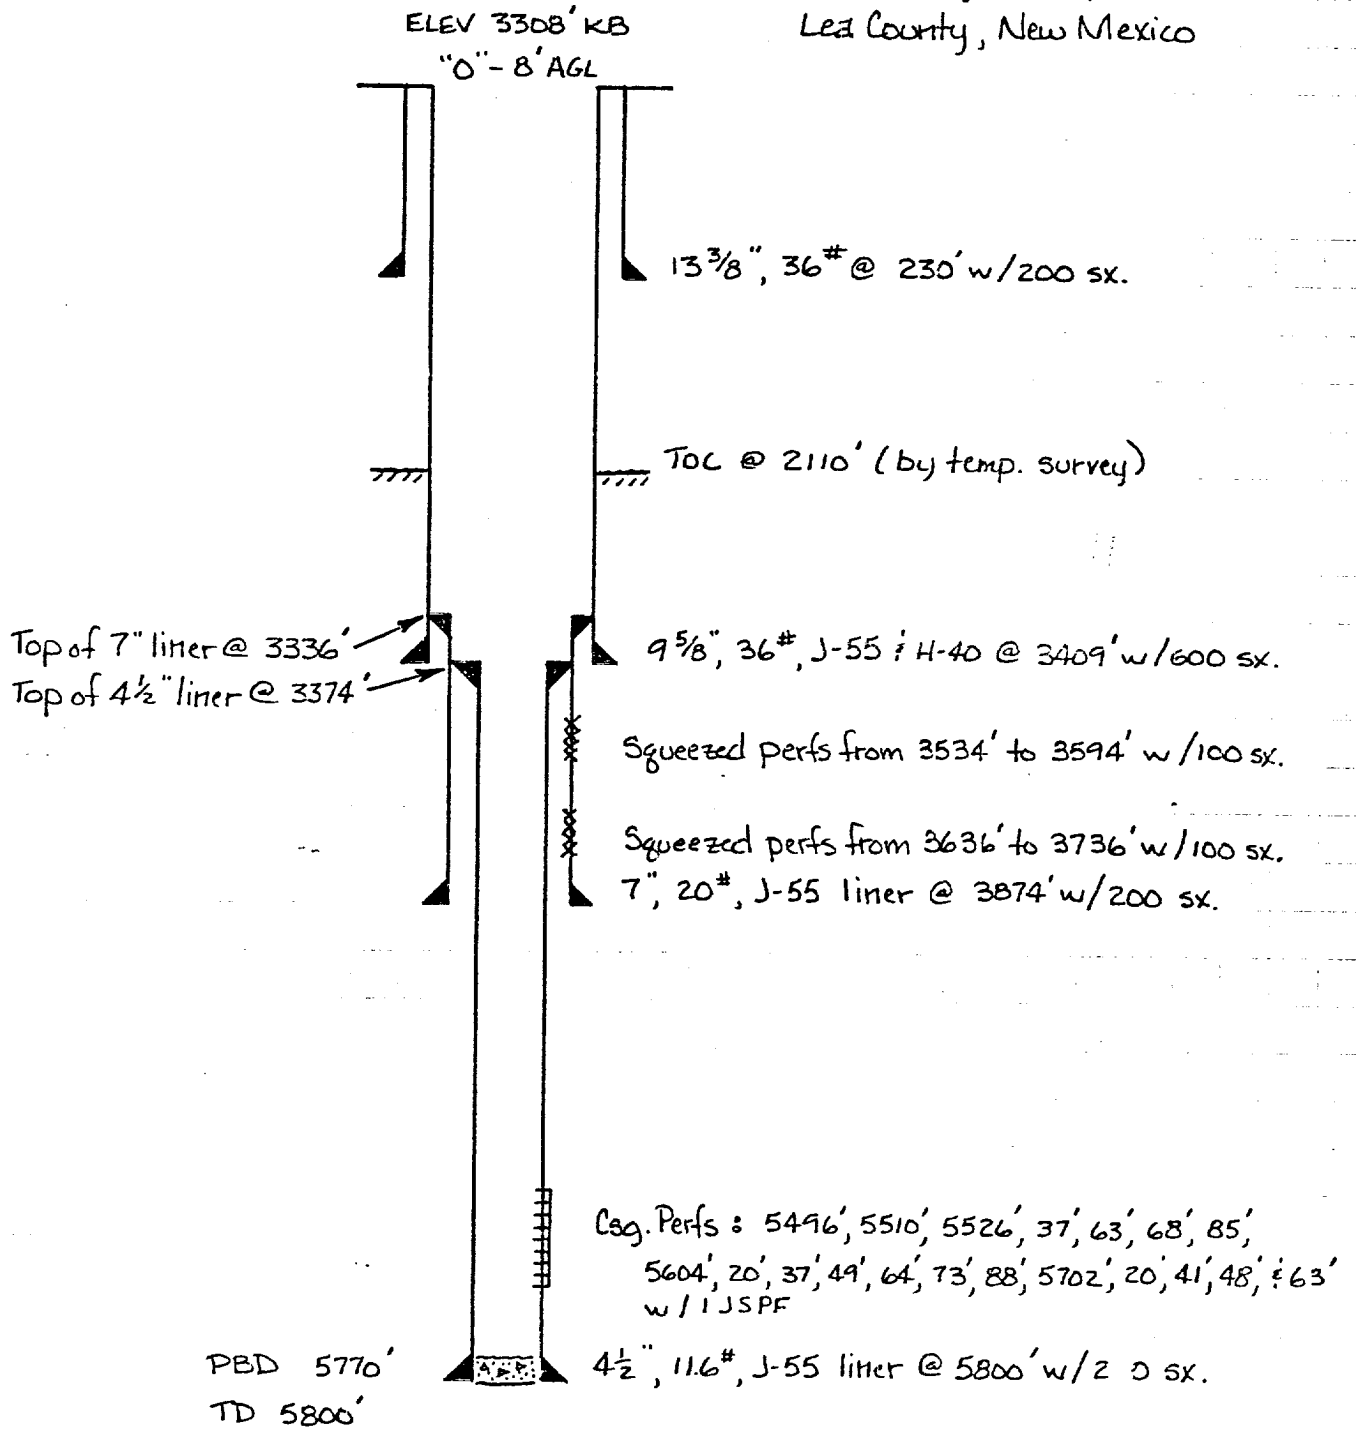 ELEV 3308' KB
"0" - 8' AGL
Lea County, New Mexico
13 3/8", 36# @ 230' w/200 sx.
TOC @ 2110' (by temp. survey)
Top of 7" liner @ 3336'
Top of 4½" liner @ 3374'
9 5/8", 36#, J-55 & H-40 @ 3409' w/600 sx.
Squeezed perfs from 3534' to 3594' w/100 sx.
Squeezed perfs from 3636' to 3736' w/100 sx.
7", 20#, J-55 liner @ 3874' w/200 sx.
Csg. Perfs: 5496', 5510', 5526', 37', 63', 68', 85',
5604', 20', 37', 49', 64', 73', 88', 5702', 20', 41', 48', & 63'
w/ 1 JSPF
PBD 5770'
TD 5800'
4½", 11.6#, J-55 liner @ 5800' w/2 0 sx.